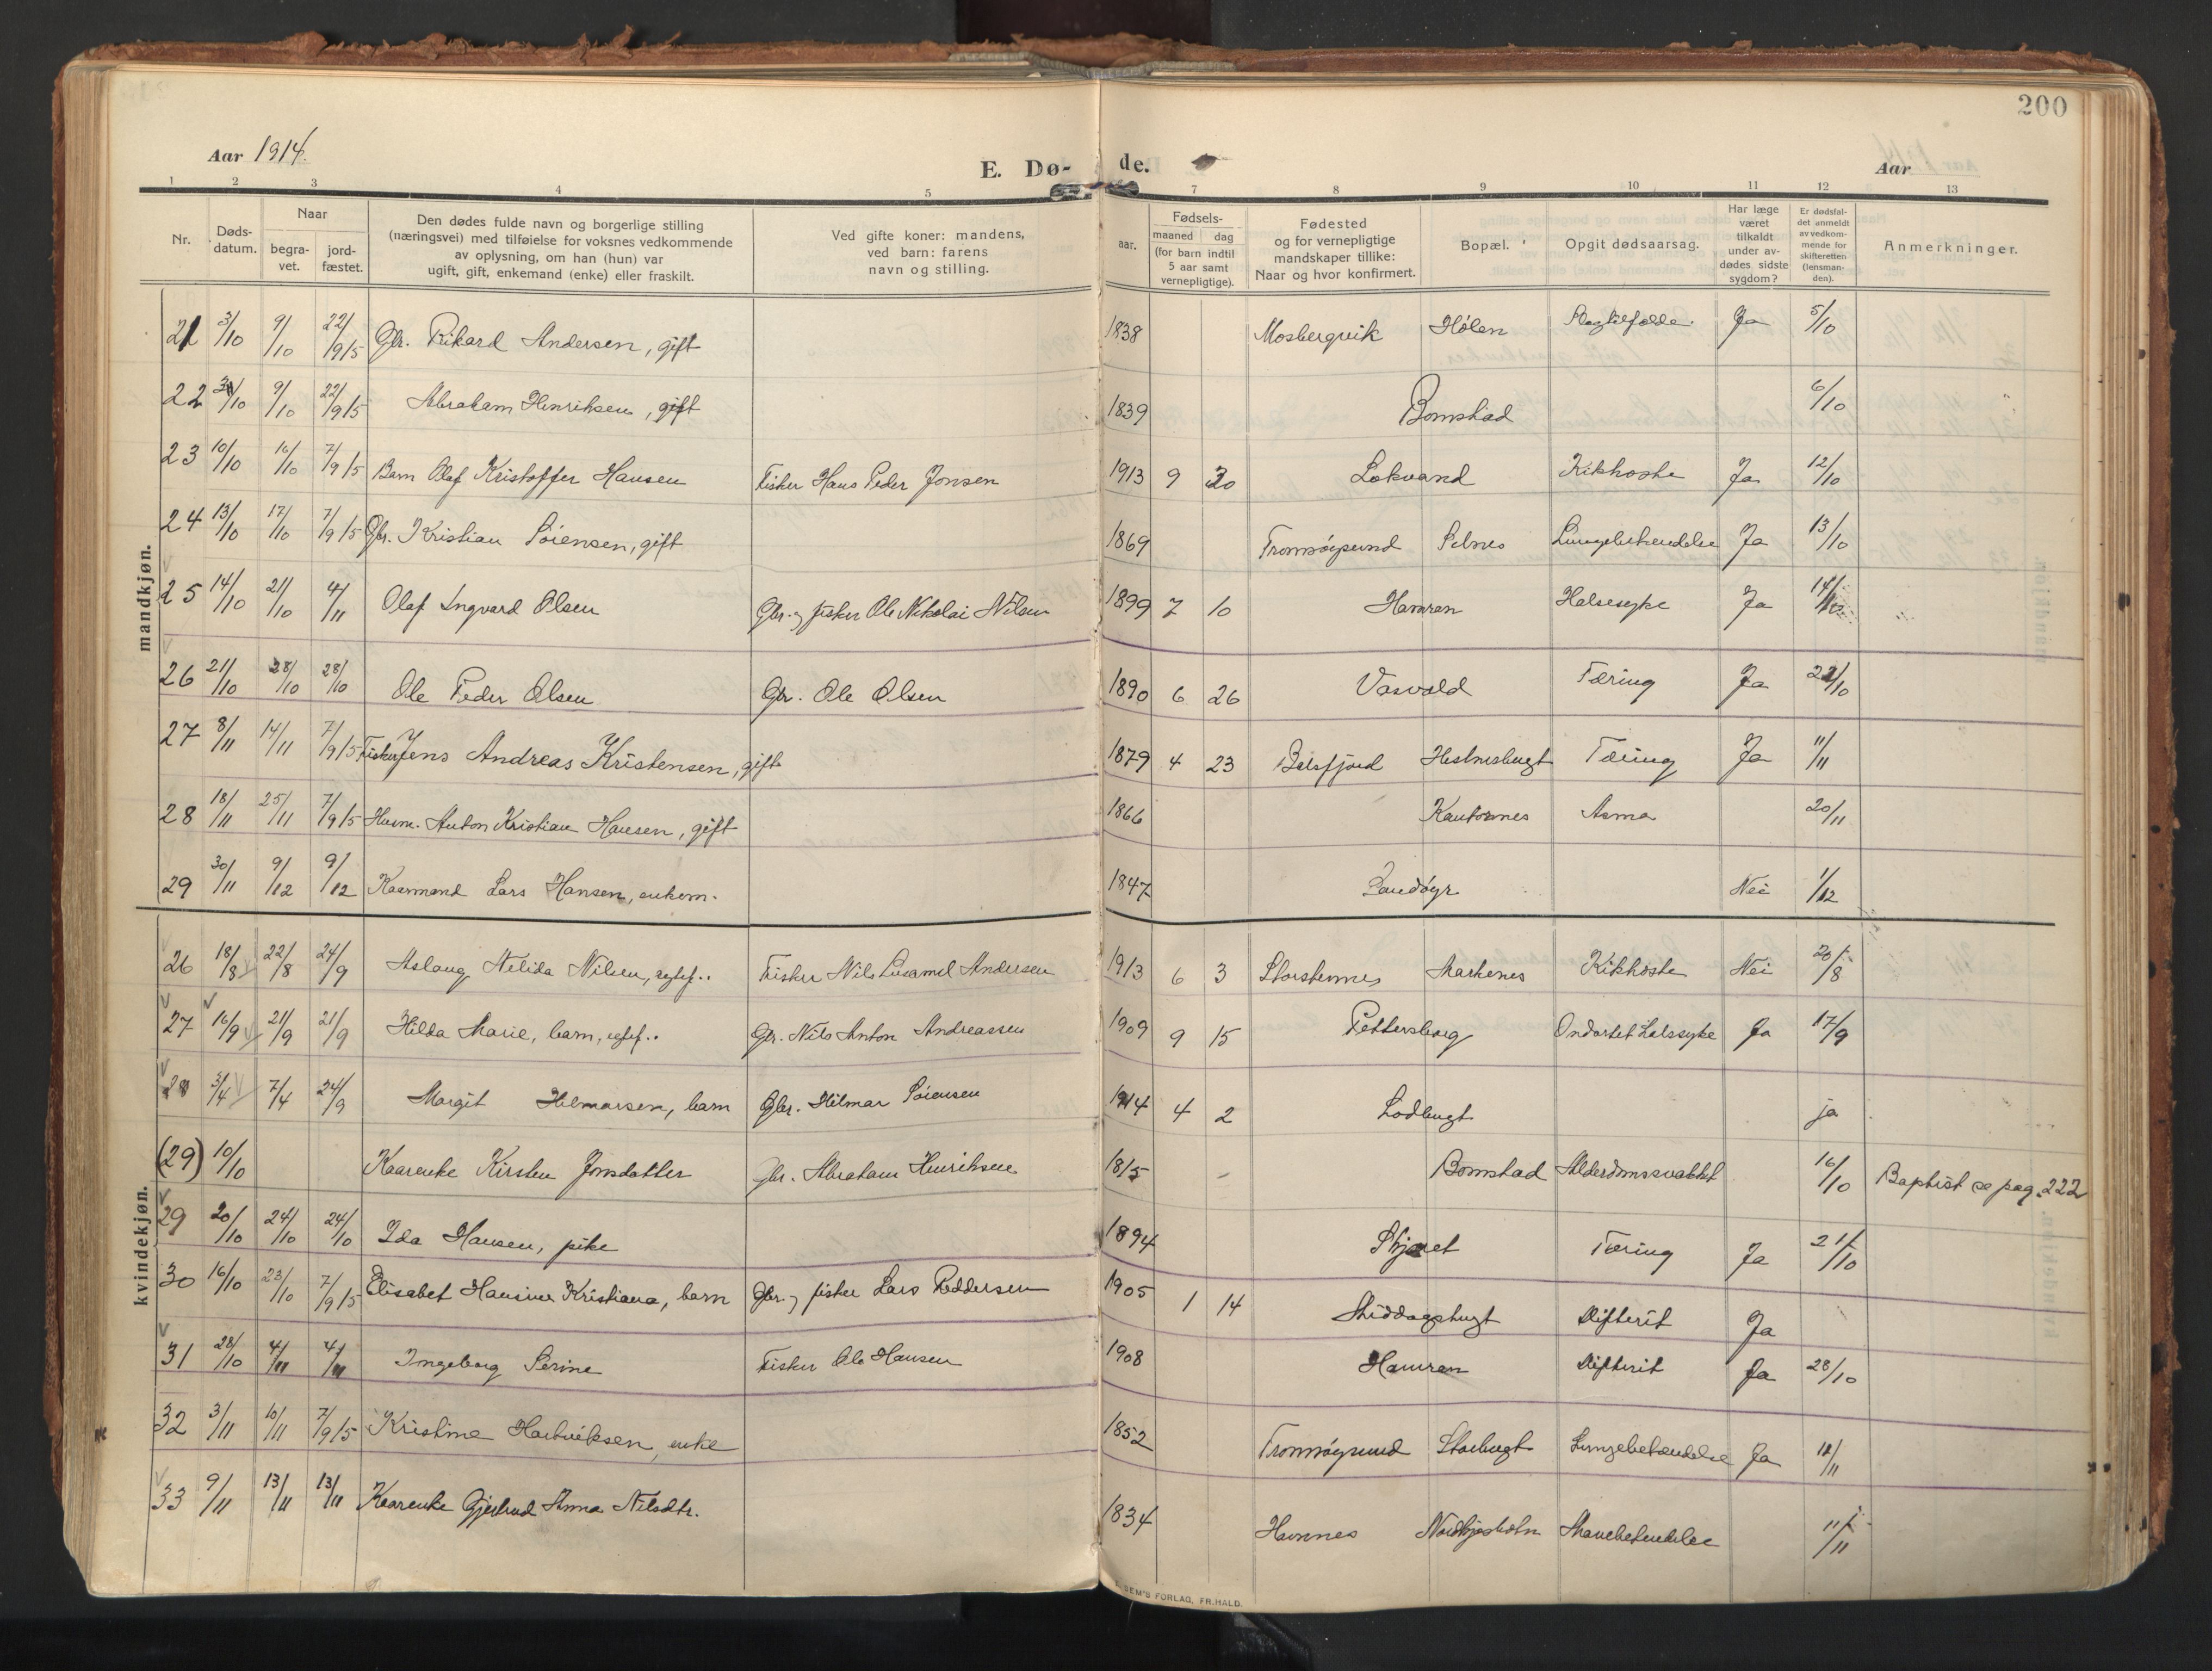 200
Aar 1914.
E. Dø- de.
Aar
1 2 3 4 5 7 8 9 10 11 12 13
Nr.
Døds-
datum.
Naar
begra-
vet.
jord-
fæstet.
Den dødes fulde navn og borgerlige stilling
(næringsvei) med tilføielse for voksnes vedkommende
av oplysning, om han (hun) var
ugift, gift, enkemand (enke) eller fraskilt.
Ved gifte koner: mandens,
ved barn: farens
navn og stilling.
aar.
Fødsels-
maaned dag
(for barn indtil
5 aar samt
vernepligtige).
Fødested
og for vernepligtige
mandskaper tillike:
Naar og hvor konfirmert.
Bopæl.
Opgit dødsaarsag.
Har læge
været
tilkaldt
under av-
dødes sidste
sygdom?
Er dødsfal-
det anmeldt
av vedkom-
mende for
skifteretten
(lensman-
den).
Anmerkninger.
mandkjøn.
21 3/10 9/10 22/915 Gbr. Rikard Andersen, gift 1838 Mosbergvik Hølen Ja 5/10
22 /10 9/10 22/915 Abraham Henriksen, gift 1839 Bomstad 6/10
23 10/10 16/10 7/915 Barn Olaf Kristoffer Hansen Fisker Hans Peder Jonsen 1913 9 30 Lokvand Kikhoste Ja 12/10
24 13/10 17/10 7/915 Gbr. Kristian Sörensen, gift 1869 Tromsøysund Selnes Lungebetændelse Ja 13/10
25 14/10 21/10 4/11 Olaf Ingvard Olsen Gbr. og fisker Ole Nikolai Nilsen 1899 7 10 Hamran Halsesyke Ja 14/10
26 21/10 28/10 28/10 Ole Peder Olsen Gbr. Ole Olsen 1890 6 26 Vasvold Tæring Ja 22/10
27 8/11 14/11 7/915 Fisker Jens Andreas Kristensen, gift 1879 4 23 Balsfjord Hestnesbugt Tæring Ja 11/11
28 18/11 25/11 7/915 Husm. Anton Kristian Hansen, gift 1866 Kantornes Asma 20/11
29 30/11 9/12 9/12 Kaarmand Lars Hansen, enkem. 1847 Sandøyr Nei 1/12
kvindekjøn.
26 18/8 22/8 24/9 Aslaug Nelida Nilsen, egtef.. Fisker Nils Andersen 1913 6 3 Storstennes Markenes Kikhoste Nei 20/8
27 16/9 21/9 21/9 Hilda Marie, barn, egtef.. Gbr. Nils Anton Andreassen 1909 9 15 Pettersborg Ondartet halssyke Ja 17/9
28 3/4 7/4 24/9 Margit Hilmarsen, barn Gbr. Hilmar Sörensen 1914 4 2 Lodbugt ja
(29) 10/10 Kaarenke Kirsten Jonsdatter Gbr. Abraham Henriksen 1815 - Bomstad Alderdomssvakhet 16/10 Baptist se pag. 222
29 20/10 24/10 24/10 Ida Hansen, pike 1894 Skjæret Tæring Ja 21/10
30 16/10 23/10 7/915 Elisabet Hansine Kristiana, barn Gbr. og fisker Lars Peddersen 1905 1 14 Middagsbugt Difterit Ja
31 28/10 4/11 4/11 Ingeborg Serine Fisker Ole Hansen 1908 Hamran Difterit Ja 28/10
32 3/11 10/11 7/915 Kristine Hartviksen, enke 1852 Tromsøysund Storbugt Lungebetændelse Ja 11/11
33 9/11 13/11 13/11 Kaarenke Gjertrud Anna Nilsdtr. 1834 Havnnes Nordkjosbotn Mavebetændelse 11/11
SEM'S FORLAG, FR.HALD.